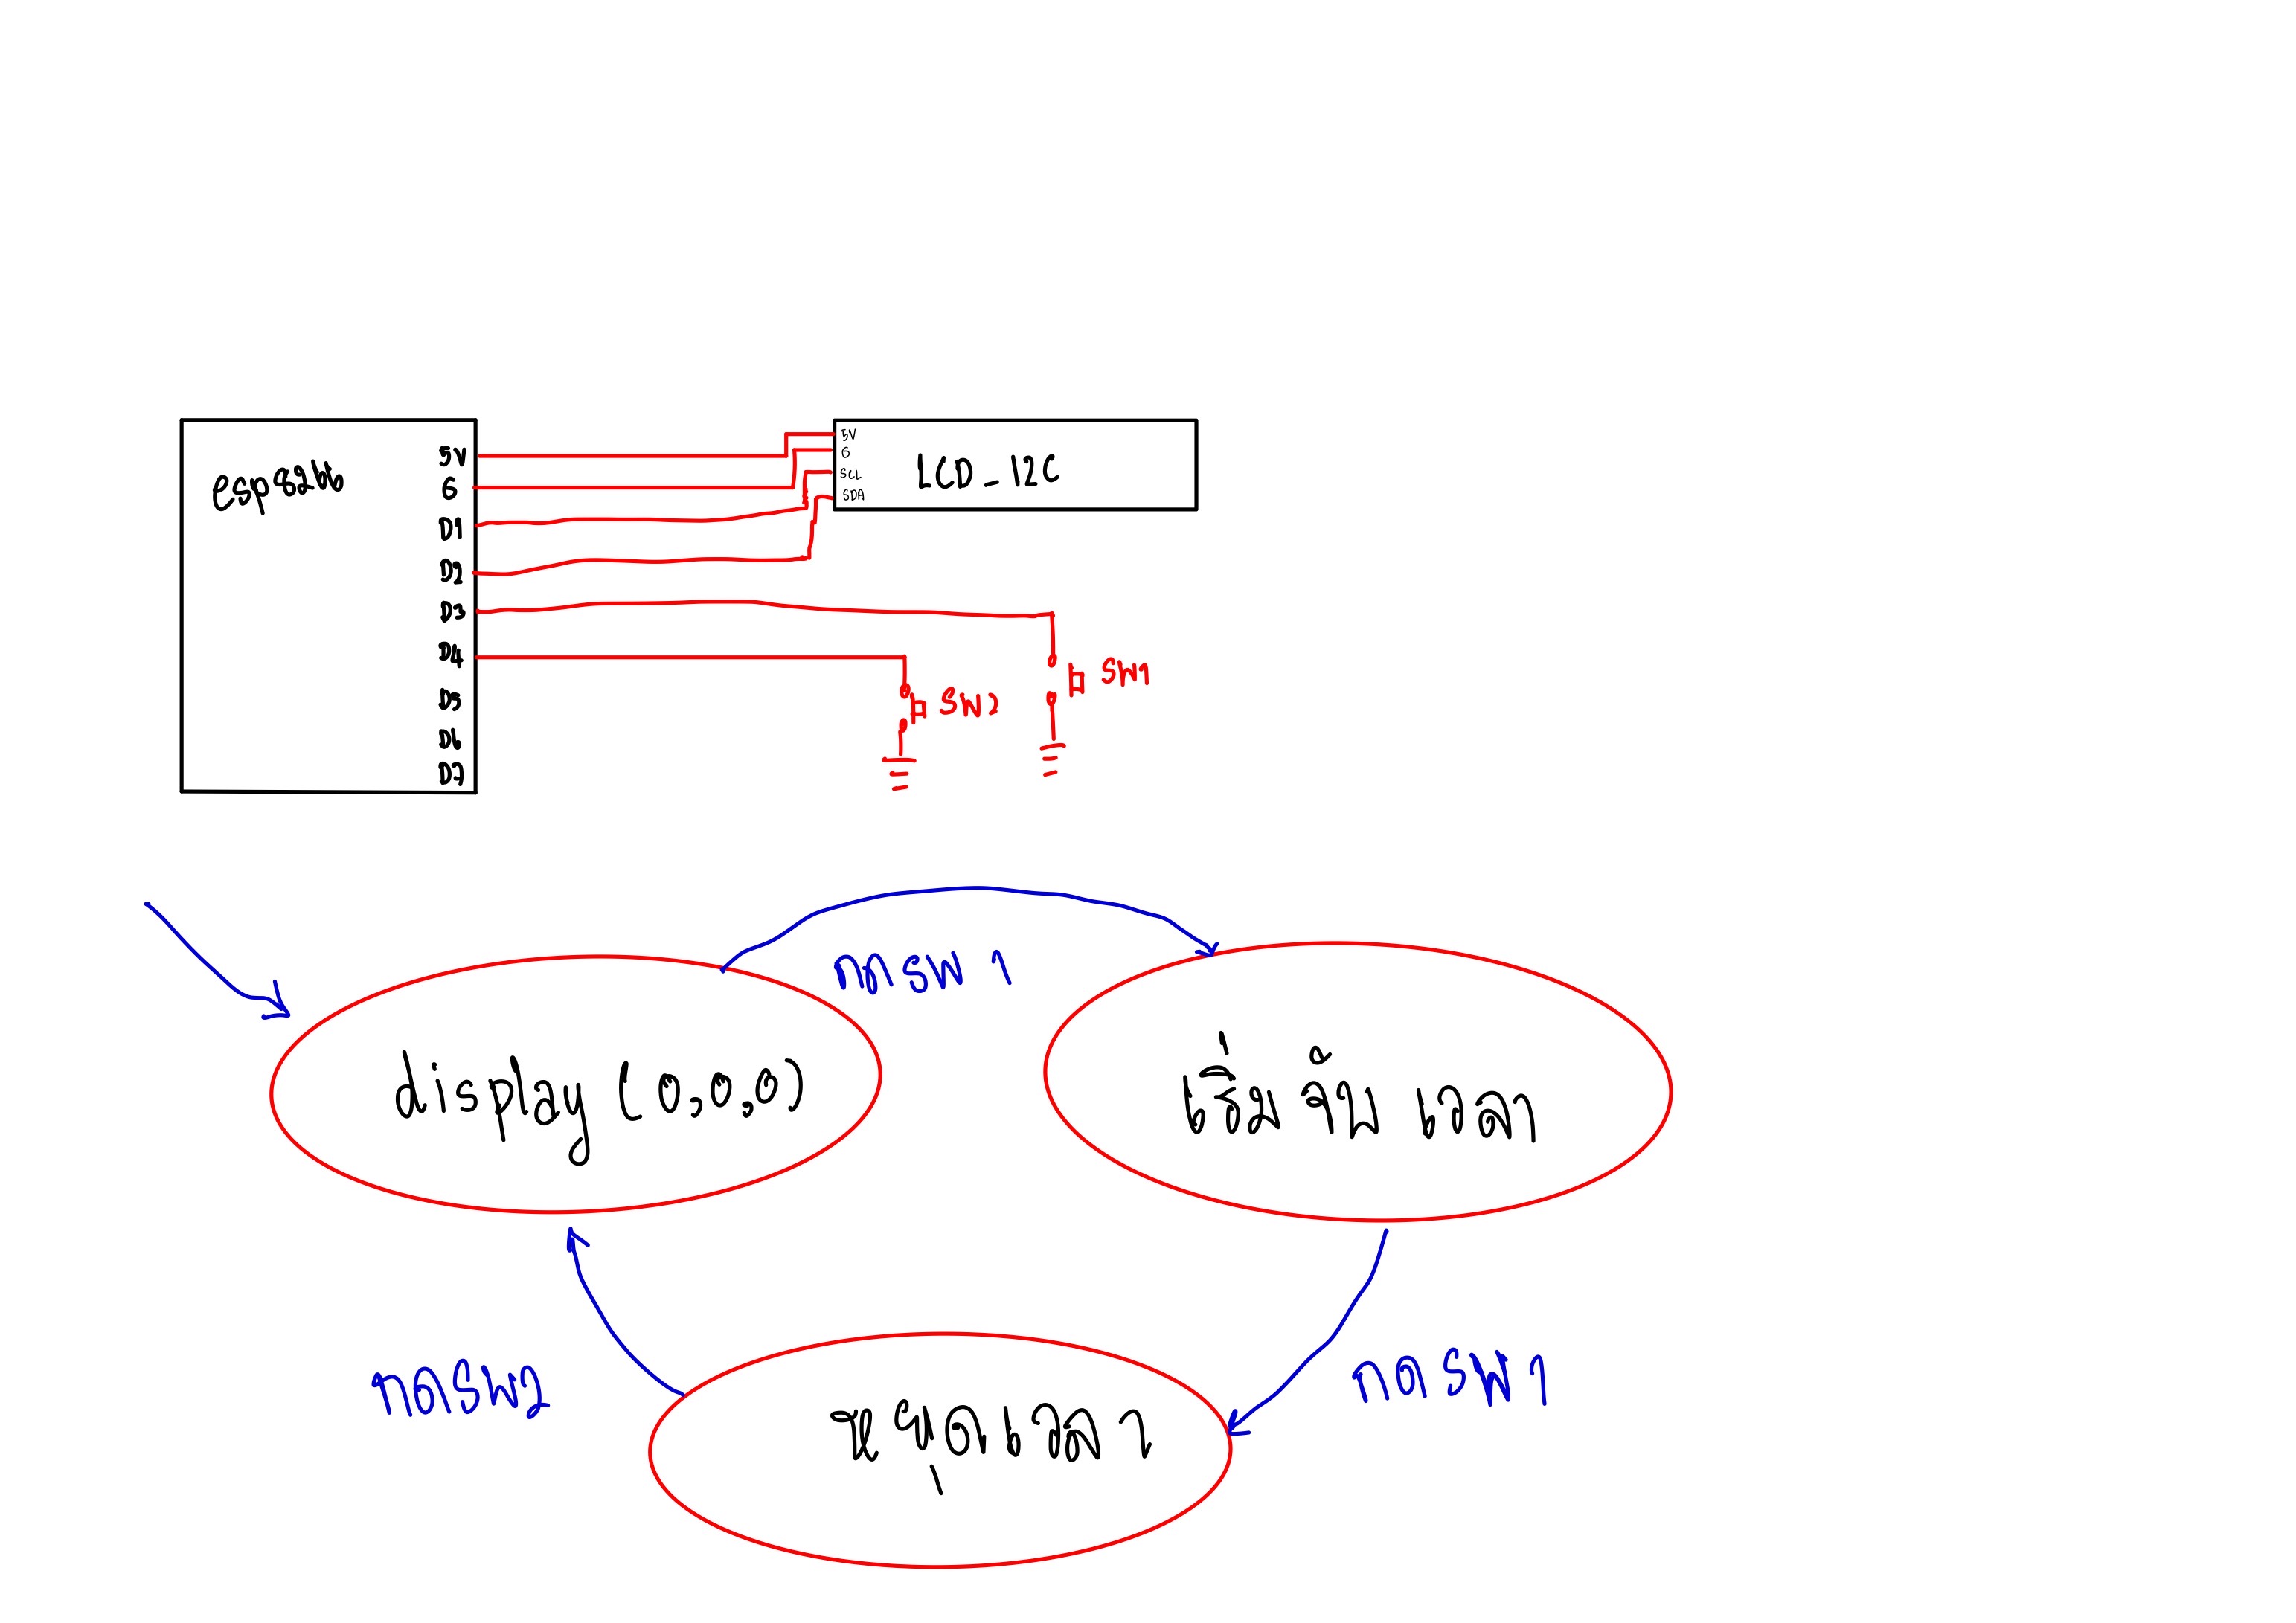 esp8266
5V
G
D1
D2
D3
D4
D5
D6
D7
5V
G
SCL
SDA
LCD_I2C
SW1
SW2
กด SW 1
display (0,0,0)
เริ่มจับ เวลา
กด SW2
กด SW 1
หยุดเวลา